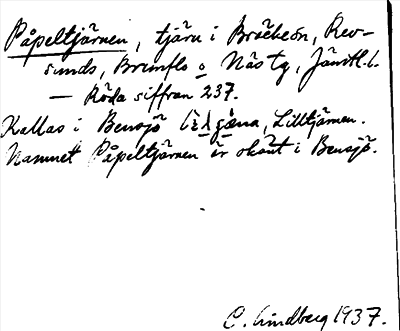 Påpeltjärnen, tjärn i Bräcke sn, Rev-
sunds, Brunflo o Näs tg, Jämtl. l.
— Röda siffran 237.
Kallas i Bensjö , Lilltjärnen.
Namnet Påpeltjärnen är okänt i Bensjö.
C. Lindberg 1937.